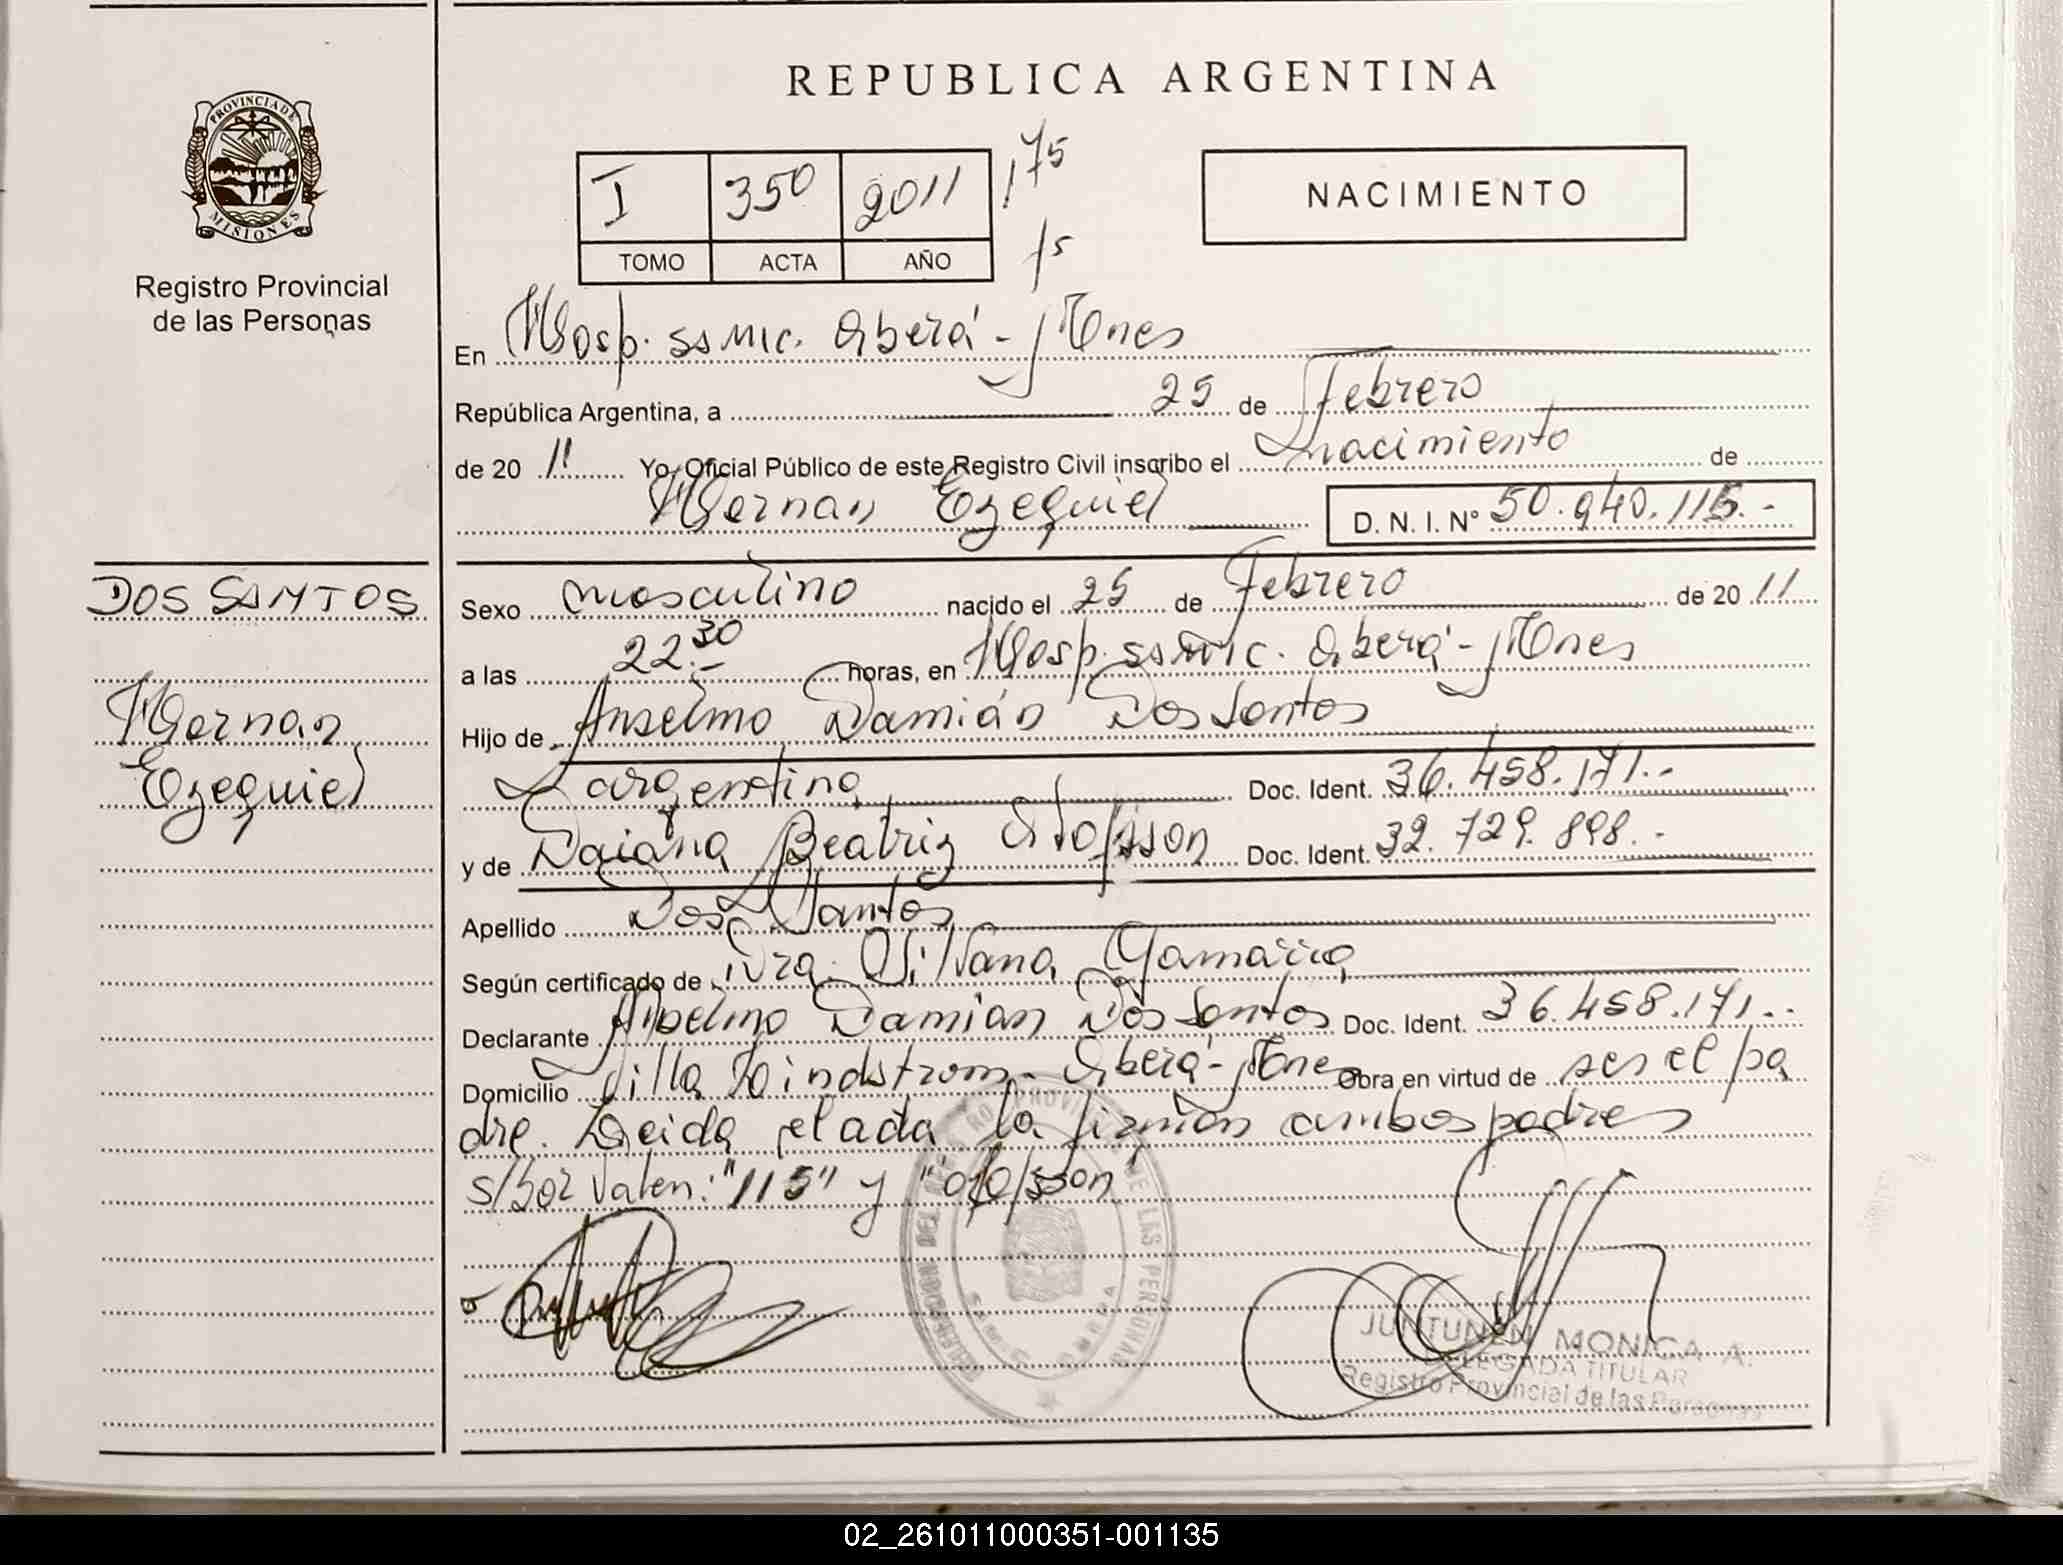 REPUBLICA ARGENTINA
PROVINCIA DE
MISIONES
Registro Provincial
de las Personas
I 350 2011 175
TOMO ACTA AÑO 75
NACIMIENTO
En Hosp. SS Mic. Oberá - Mnes
República Argentina, a 25 de Febrero
de 20 11 Yo, Oficial Público de este Registro Civil inscribo el nacimiento de
Hernan Ezequiel D. N. I. Nº 50.940.115.-
DOS SANTOS
Hernan
Ezequiel
Sexo masculino nacido el 25 de Febrero de 20 11
a las 22.30 horas, en Hosp. SS Mic. Oberá - Mnes
Hijo de Anselmo Damián Dos Santos
argentino Doc. Ident. 36.458.171.-
y de Daiana Beatriz Olofsson Doc. Ident. 32.729.898.-
Apellido Dos Santos
Según certificado de Dra. Silvana Gamarra
Declarante Anselmo Damian Dos Santos Doc. Ident. 36.458.171.-
Domicilio Villa Lindstrom - Oberá - Mnes Obra en virtud de ser el pa
dre. Leida el acta la firman ambos padres
s/bor Valen: "115" y "Olofsson"
JUNTUNEN MONICA A.
DELEGADA TITULAR
Registro Provincial de las Personas
02_261011000351-001135